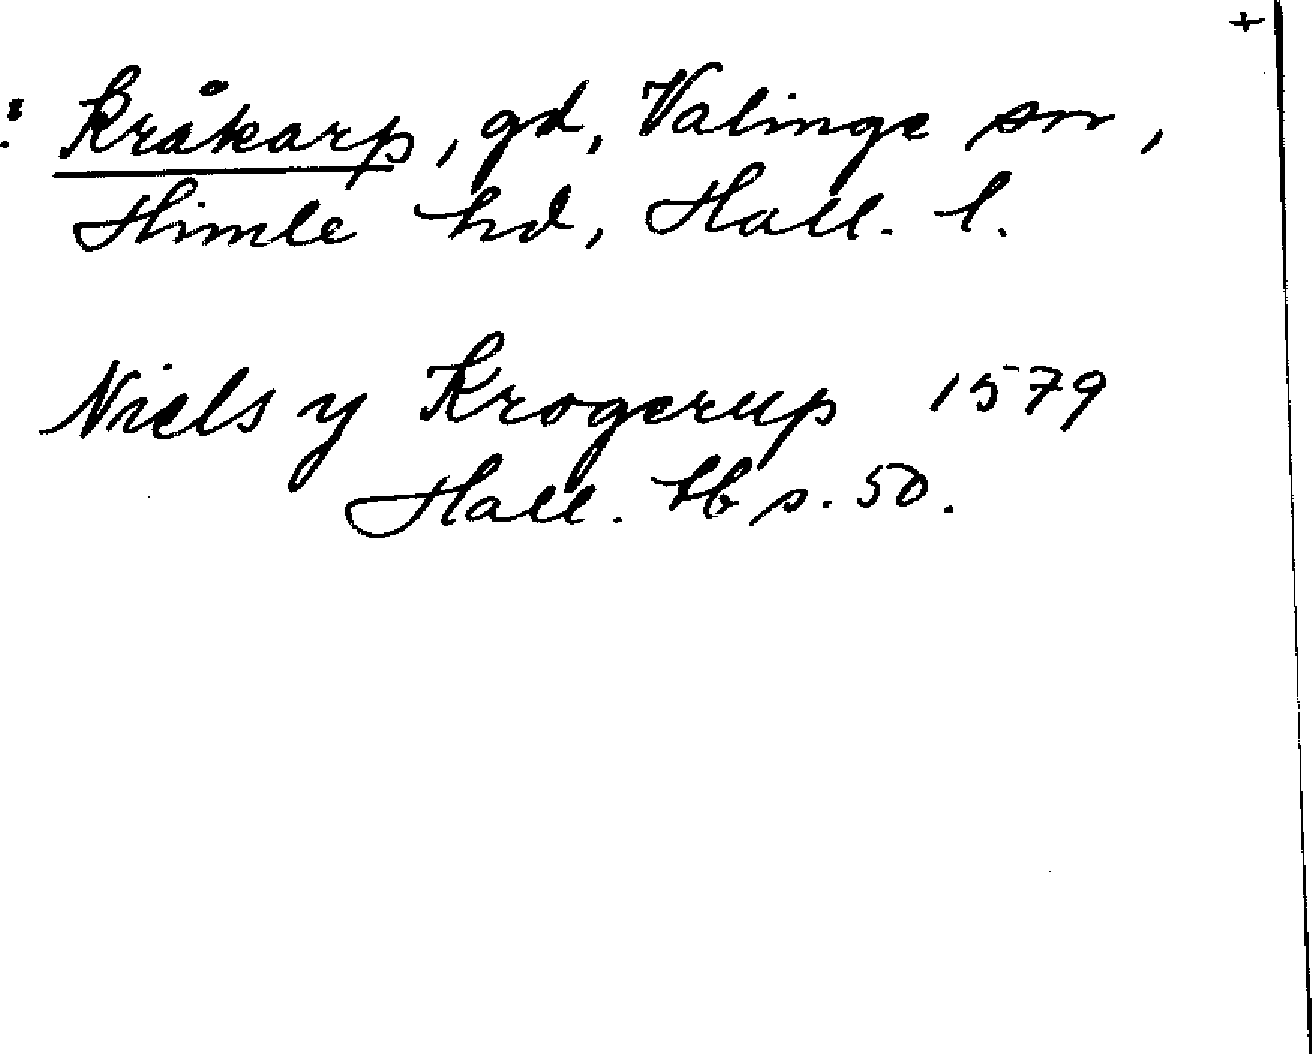 : Kråkarp, gd, Valinge sn,
Himle hd, Hall. l.
Niels y Krogerup 1579
Hall. tb s. 50.